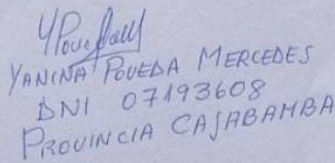 YANINA POVEDA MERCEDES
DNI 07193608
PROVINCIA CAJABAMBA